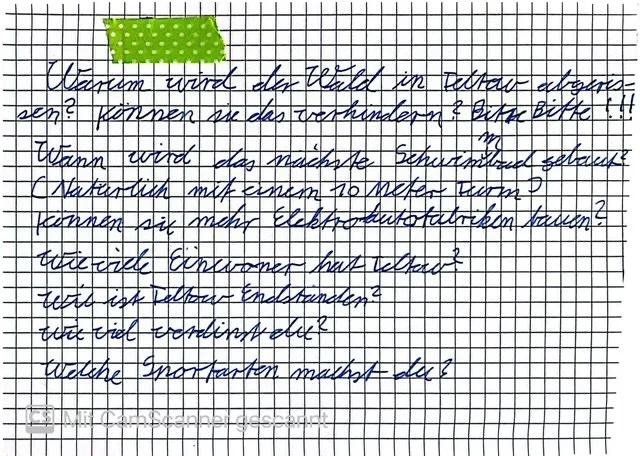 Warum wird der Wald in Teltow abgeris-
sen? können sie das verhindern? Bitte Bitte!!!
Wann wird das nächste Schwimmbad gebaut?
(Natürlich mit einem 10 Meter Turm)
können sie mehr Elektroautofabriken bauen?
Wie viele Einwoner hat Teltow?
Wie ist Teltow Endstanden?
Wie viel verdinst du?
Welche Sportarten machst du?
CS Mit CamScanner gescannt